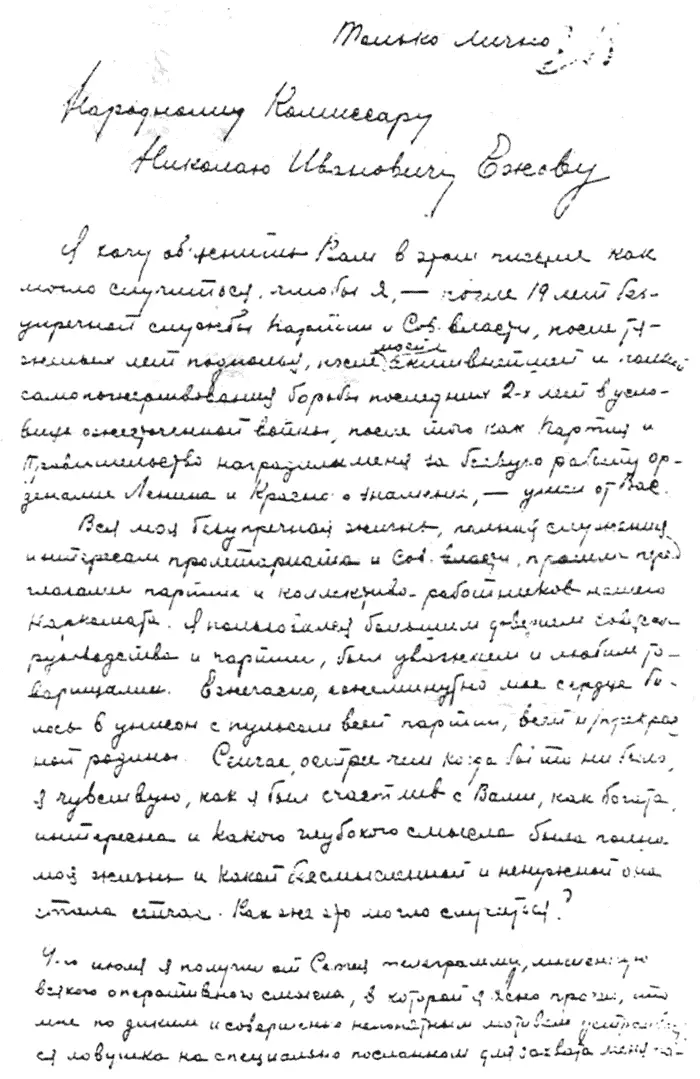 Только лично
Народному Комиссару
Николаю Ивановичу Ежову
Я хочу об'яснить Вам в этом письме как
могло случиться, чтобы я, — после 19 лет без-
упречной службы Партии и Сов. власти, после тя-
желых лет подполья, после активнейшей и полной
самопожертвования борьбы последних 2-х лет в усло-
виях ожесточенной войны, после того как Партия и
Правительство наградили меня за боевую работу ор-
денами Ленина и Красного знамени, — ушел от Вас.
Вся моя безупречная жизнь, полная служения
интересам пролетариата и Сов. власти, прошла перед
глазами партии и коллектива работников нашего
Наркомата. Я пользовался большим доверием
руководства и партии, был уважаем и любим то-
варищами. Ежечасно, ежеминутно мое сердце би-
лось в унисон с пульсом всей партии, всей прекрас-
ной родины. Сейчас, острее чем когда бы то ни было,
я чувствую, как я был счастлив с Вами, как богата,
интересна и какого глубокого смысла была полна
моя жизнь и какой бессмысленной и ненужной она
стала сейчас. Как же это могло случиться?
июля я получил от Сергея телеграмму, лишенную
всякого оперативного смысла, в которой я ясно прочел, что
мне по диким и совершенно непонятным мотивам устраивает-
ся ловушка на специально посланном для захвата меня па-